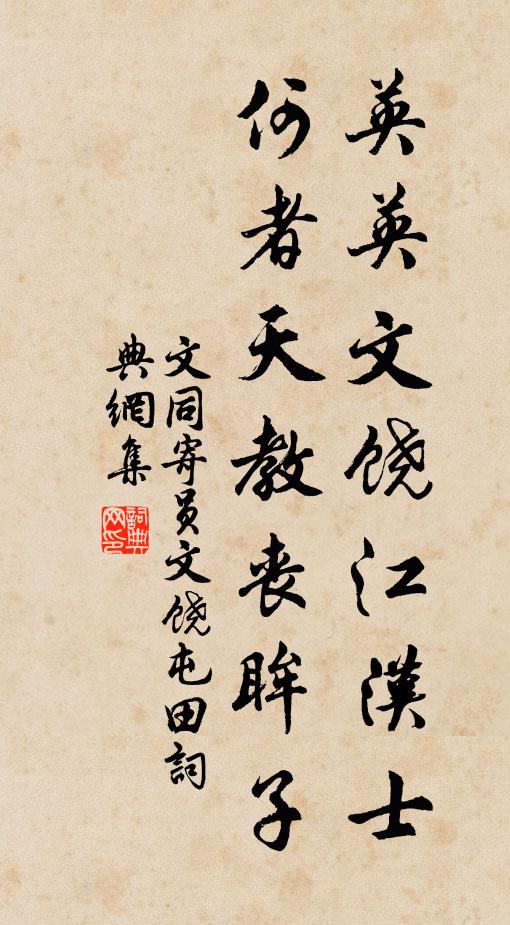 英英文饶江漢士
何者天教丧眸子
文同寄员文饶屯田詞
典網集
詞典網印